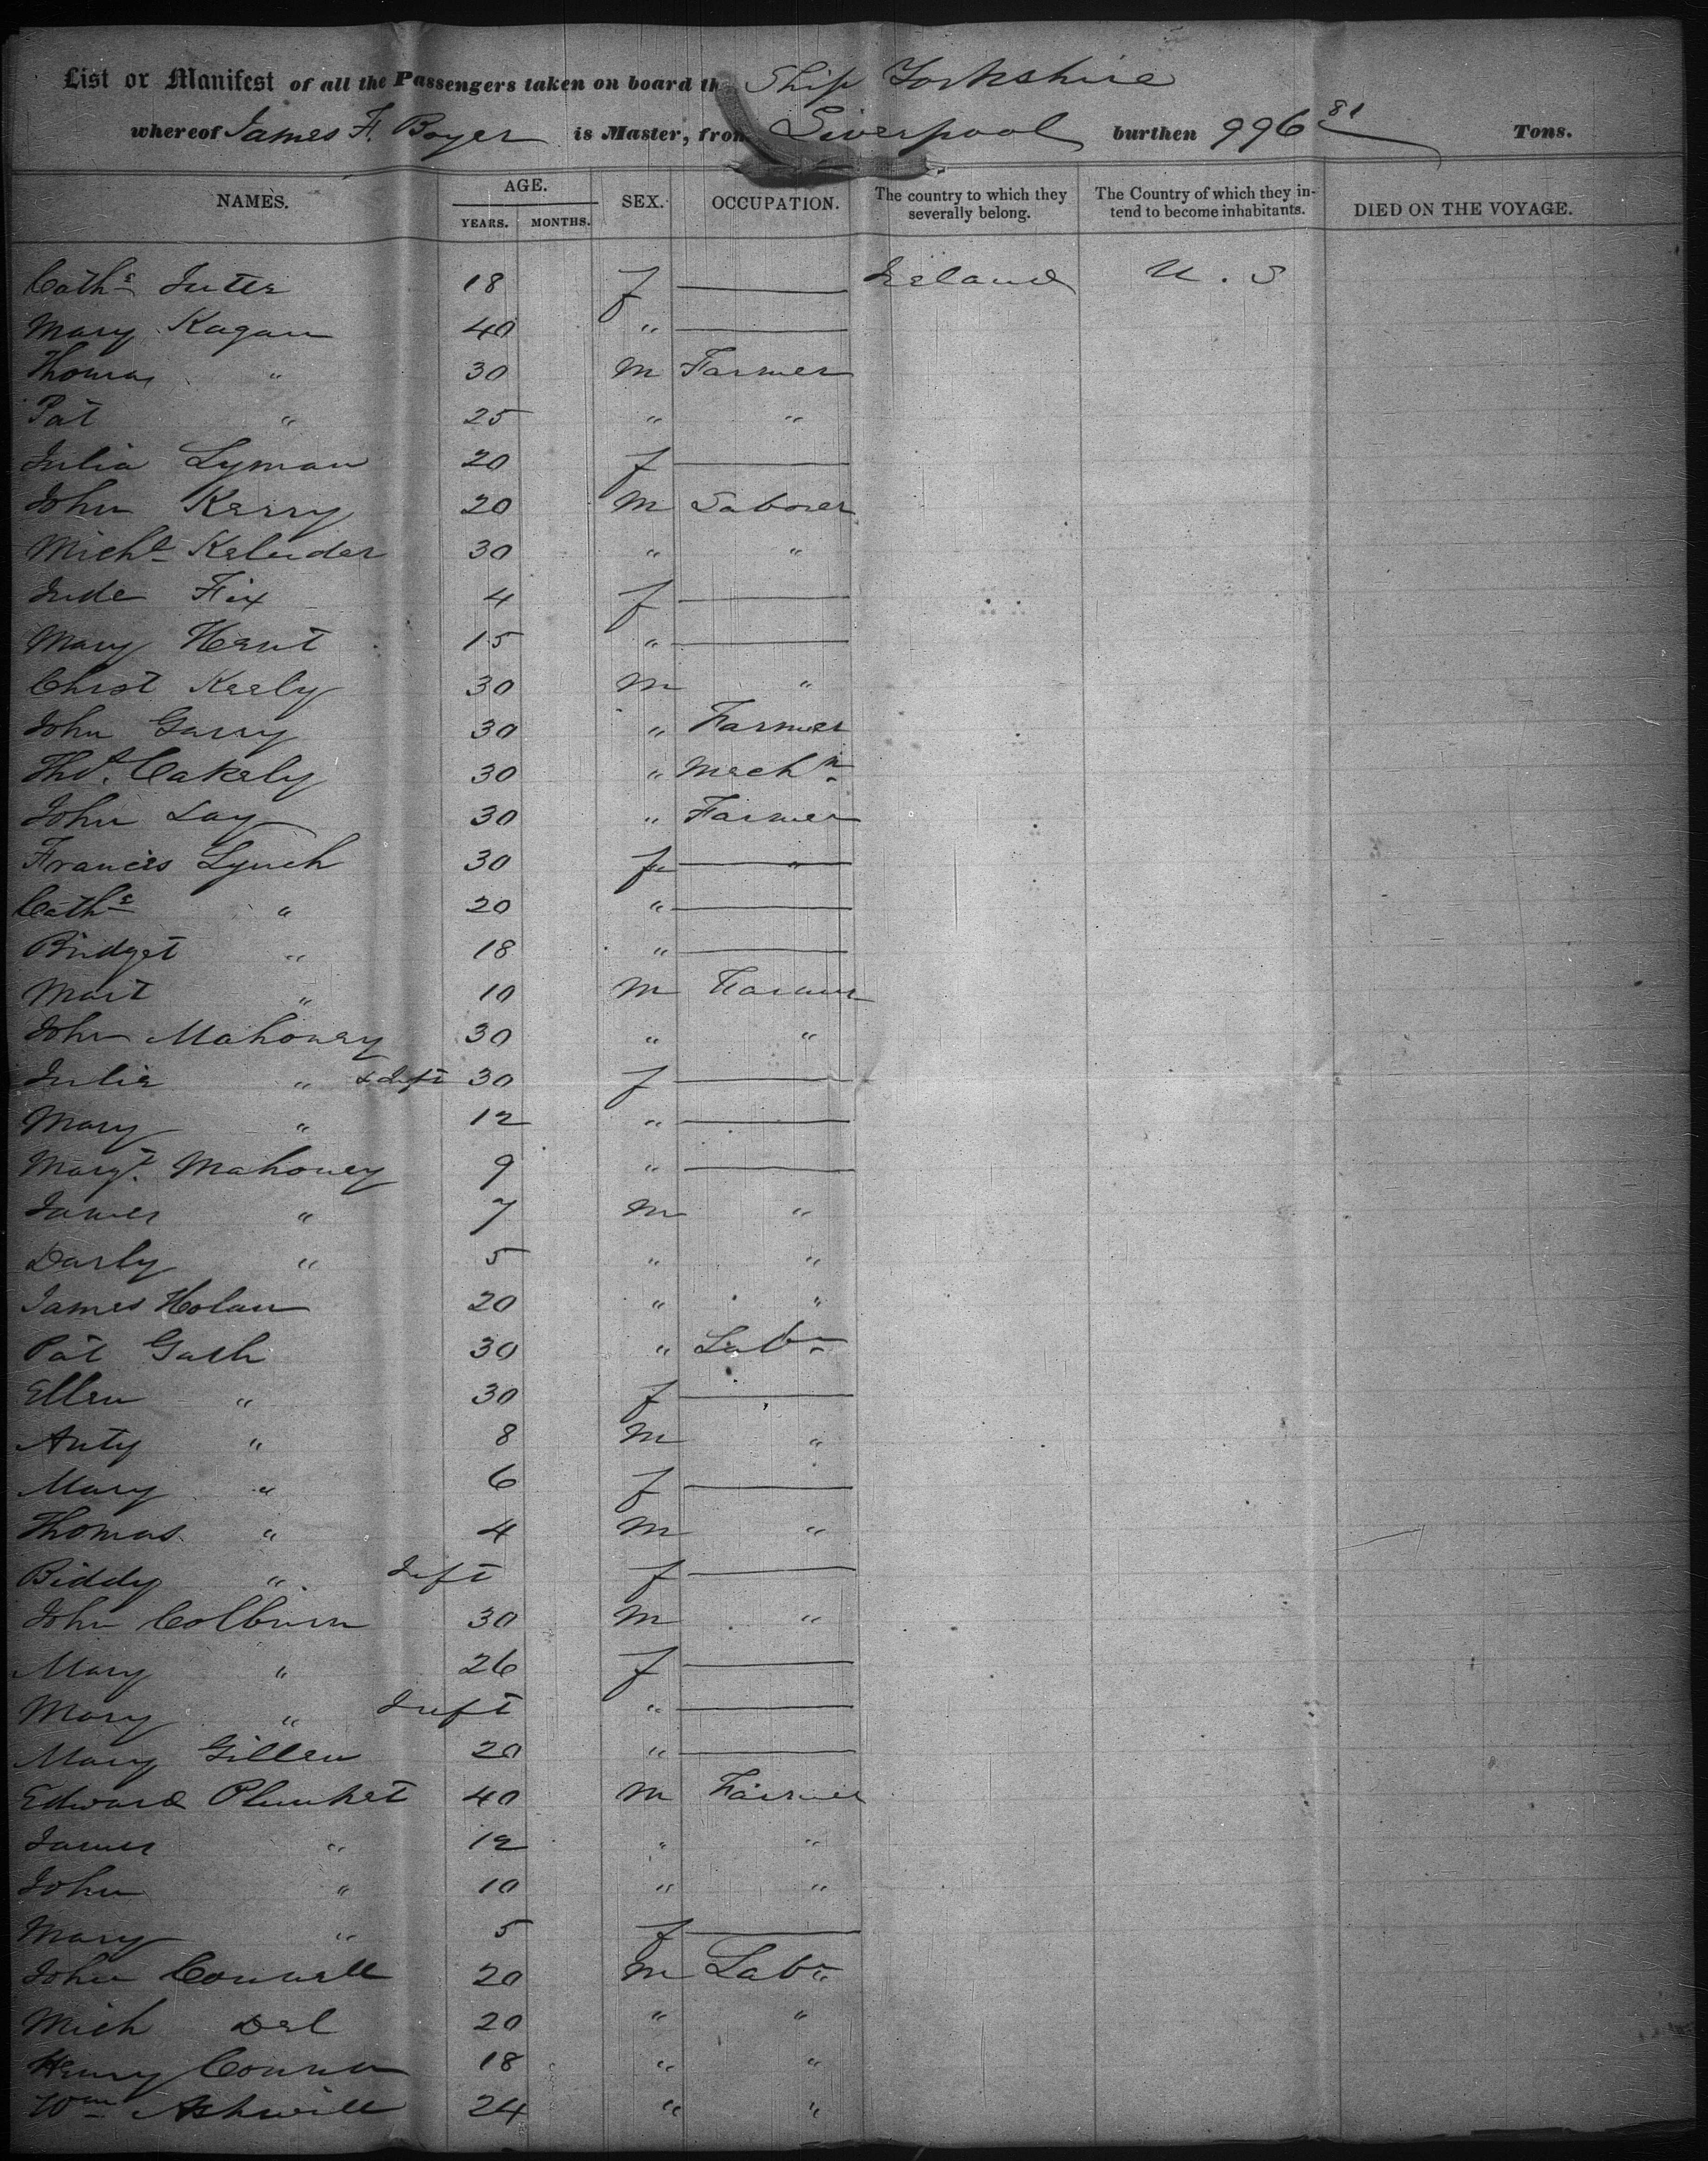 List or Manifest of all the Passengers taken on board th Ship Yorkshire
whereof James F. Boyer is Master, from Liverpool burthen 996 81 Tons.
NAMES. AGE. SEX. OCCUPATION. The country to which they severally belong. The Country of which they in-tend to become inhabitants. DIED ON THE VOYAGE.
YEARS. MONTHS.
Cathe 18 f Ireland U. S
Mary Kagan 40 "
Thomas " 30 M Farmer
Pat " 25 " "
Julia Lyman 20 f
John Kerry 20 M Laborer
Michl 30 " "
Jude Fix 4 f
Mary 15 "
Christ Keely 30 M "
John Garry 30 " Farmer
Thos. Cakely 30 " Mechn
John Lay 30 " Farmer
Francis Lynch 30 f "
Cathe " 20 "
Bridget " 18 "
Mart " 10 M Farmer
John Mahoney 30 " "
Julia " & Inft 30 f
Mary " 12 "
Margt. Mahoney 9 "
James " 7 M "
Darby " 5 " "
James Holan 20 " "
Pat Gath 30 " Labr
Ellen " 30 f
Anty " 8 M "
Mary " 6 f
Thomas " 4 M "
Biddy " Inft f
John Colburn 30 M "
Mary " 26 f
Mary " Inft "
Mary Gillen 20 "
Edward Plunket 40 M Farmer
James " 12 " "
John " 10 " "
Mary " 5 f
John Connell 20 M Labr
Mich Del 20 " "
Henry Connor 18 " "
Wm Ashwill 24 " "